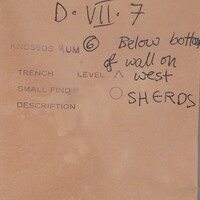 D·VII·7
KNOSSOS RUM ⑥ Below bottom
of wall on
TRENCH LEVEL ^ west
SMALL FIND ○ SHERDS
DESCRIPTION